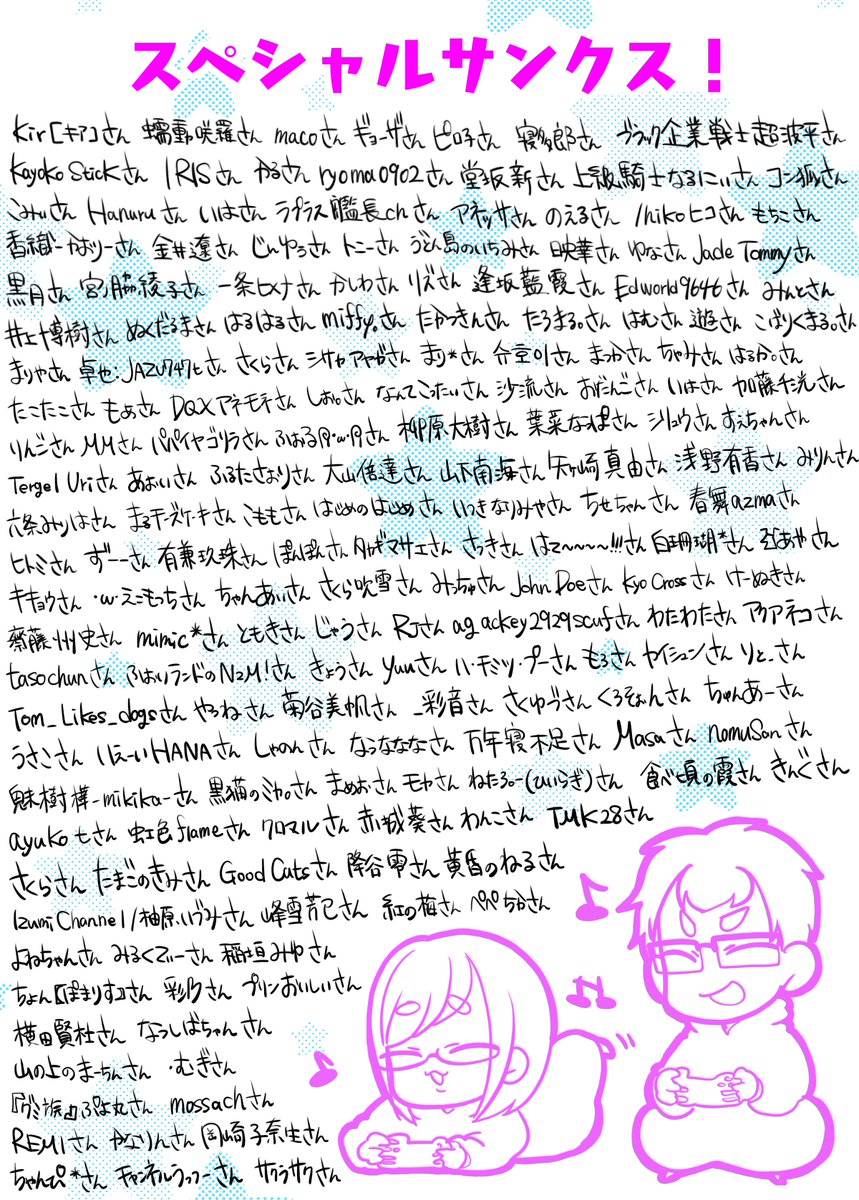 スペシャルサンクス！
Kir[キア]さん 蠕動咲羅さん macoさん ギョーザさん ピロ子さん 寝多郎さん ブラック企業戦士超波平さん
Kayoko Stickさん IRISさん かるさん ryoma0902さん 堂坂新さん 上級騎士なるにぃさん コン狐さん
こみぃさん Hanuruさん いはさん ラプラス艦長chさん アネッサさん のえるさん /hikoヒコさん もちこさん
香織-かおりーさん 金井遼さん じんゆうさん トニーさん うどん島のいちみさん 映華さん ゆなさん Jade Tommyさん
黒月さん 宮ノ脇綾子さん 一条ヒメナさん かしわさん リズさん 逢坂藍霞さん Edworld9646さん みんとさん
井上博樹さん ぬくだるまさん はるはるさん miffy.さん たかつきんさん たろまる。さん はむさん 遊さん こばりくまる。さん
まりやさん 卓也:JAZU747とさん さくらさん シサヤアヤガさん まり*さん 介京01さん まっかさん ちゃみさん はるか。さん
たこたこさん もめさん DQXアネモネさん しおぃさん なんてこったいさん 沙流さん おだんごさん いはさん 加藤千洸さん
りんごさん MMさん パパイヤゴリラさん 柳原大樹さん 葉菜なっぱさん シリュウさん すえちゃんさん
Tergel Uriさん あおいさん ふるたさおりさん 大山倍達さん 山下南海さん 矢ヶ崎真由さん 浅野有香さん みりんさん
六条みりはさん まるチーズケーキさん こももさん はじめのはじめさん いつきなりみやさん ちせちゃんさん 春舞azmaさん
ヒトミさん ずーーさん 有兼玖珠さん ぽんぽんさん タカギマサエさん さつきさん はて〜〜〜〜!!!さん 白珊瑚*さん
キキョウさん ･w･えこもっちさん ちゃんあぃさん さくら吹雪さん みっちゅさん John Doeさん Kyo Crossさん けーぬきさん
齋藤州史さん mimic*さん ともきさん じゃうさん RJさん ag ackey2929scufさん わたわたさん アクアネコさん
tasochunさん ふぁいランドのN2M!さん きょうさん yuuさん ハ・チミツ・プーさん もろさん ヤイシュンさん りと_さん
Tom_Likes_dogsさん やろねさん 菊谷美帆さん _彩音さん さくゆづさん くろぞぉんさん ちゃんあーさん
うさこさん いえーいHANAさん しゃのんさん なっなななさん 万年寝不足さん Masaさん nomuSonさん
魅樹樺-mikika-さん 黒猫のミカ。さん まめおさん モヤさん ねたろー(ひいらぎ)さん 食べ頃の霞さん きんぐさん
ayukoもさん 虹色flameさん クロマルさん 赤城葵さん わんこさん TMK28さん
さくらさん たまごのきみさん Good Cutsさん 降谷零さん 黄昏のねるさん
Izumi Channel/柚原いづみさん 峰雪芳己さん 紅の梅さん ぺぺちかさん
よねちゃんさん みるくてぃーさん 稲垣みやさん
ちょん【ぽまりす】さん 彩乃さん プリンおいしいさん
横田賢杜さん なっしばちゃんさん
山の上のまーちんさん ･むぎさん
『グミ族』ぷよ丸さん mossachさん
REMIさん かなりんさん 岡崎子奈生さん
ちゃんぴ*さん チャンネルうっつーさん サクラサクさん